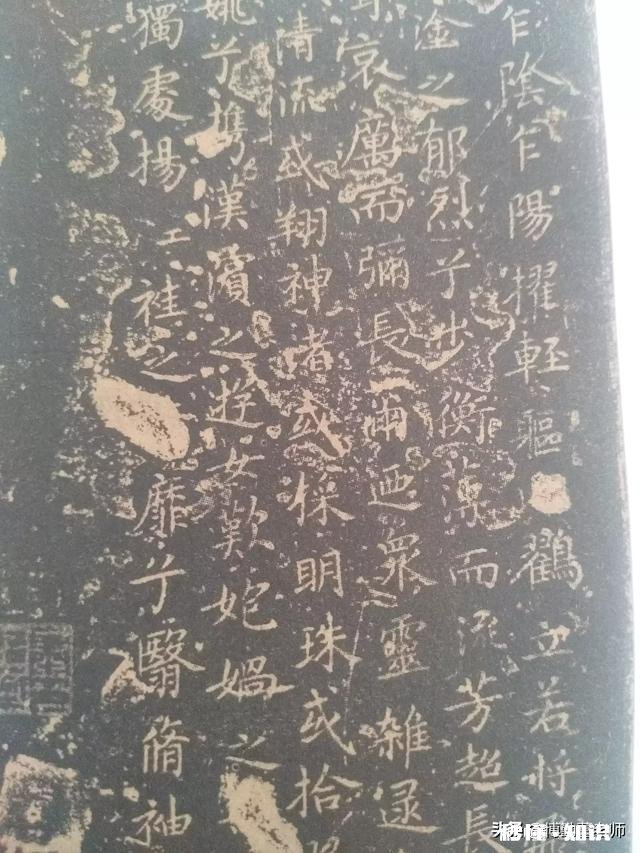 乍陰乍陽擢輕軀鶴立若將
塗之郁烈兮步衡薄而流芳超長
哀厲而彌長爾迺衆靈雜遝
清流或翔神渚或採明珠或拾
姚兮攜漢濱之遊女歎媧之
獨處揚袿之靡兮翳脩袖
老师